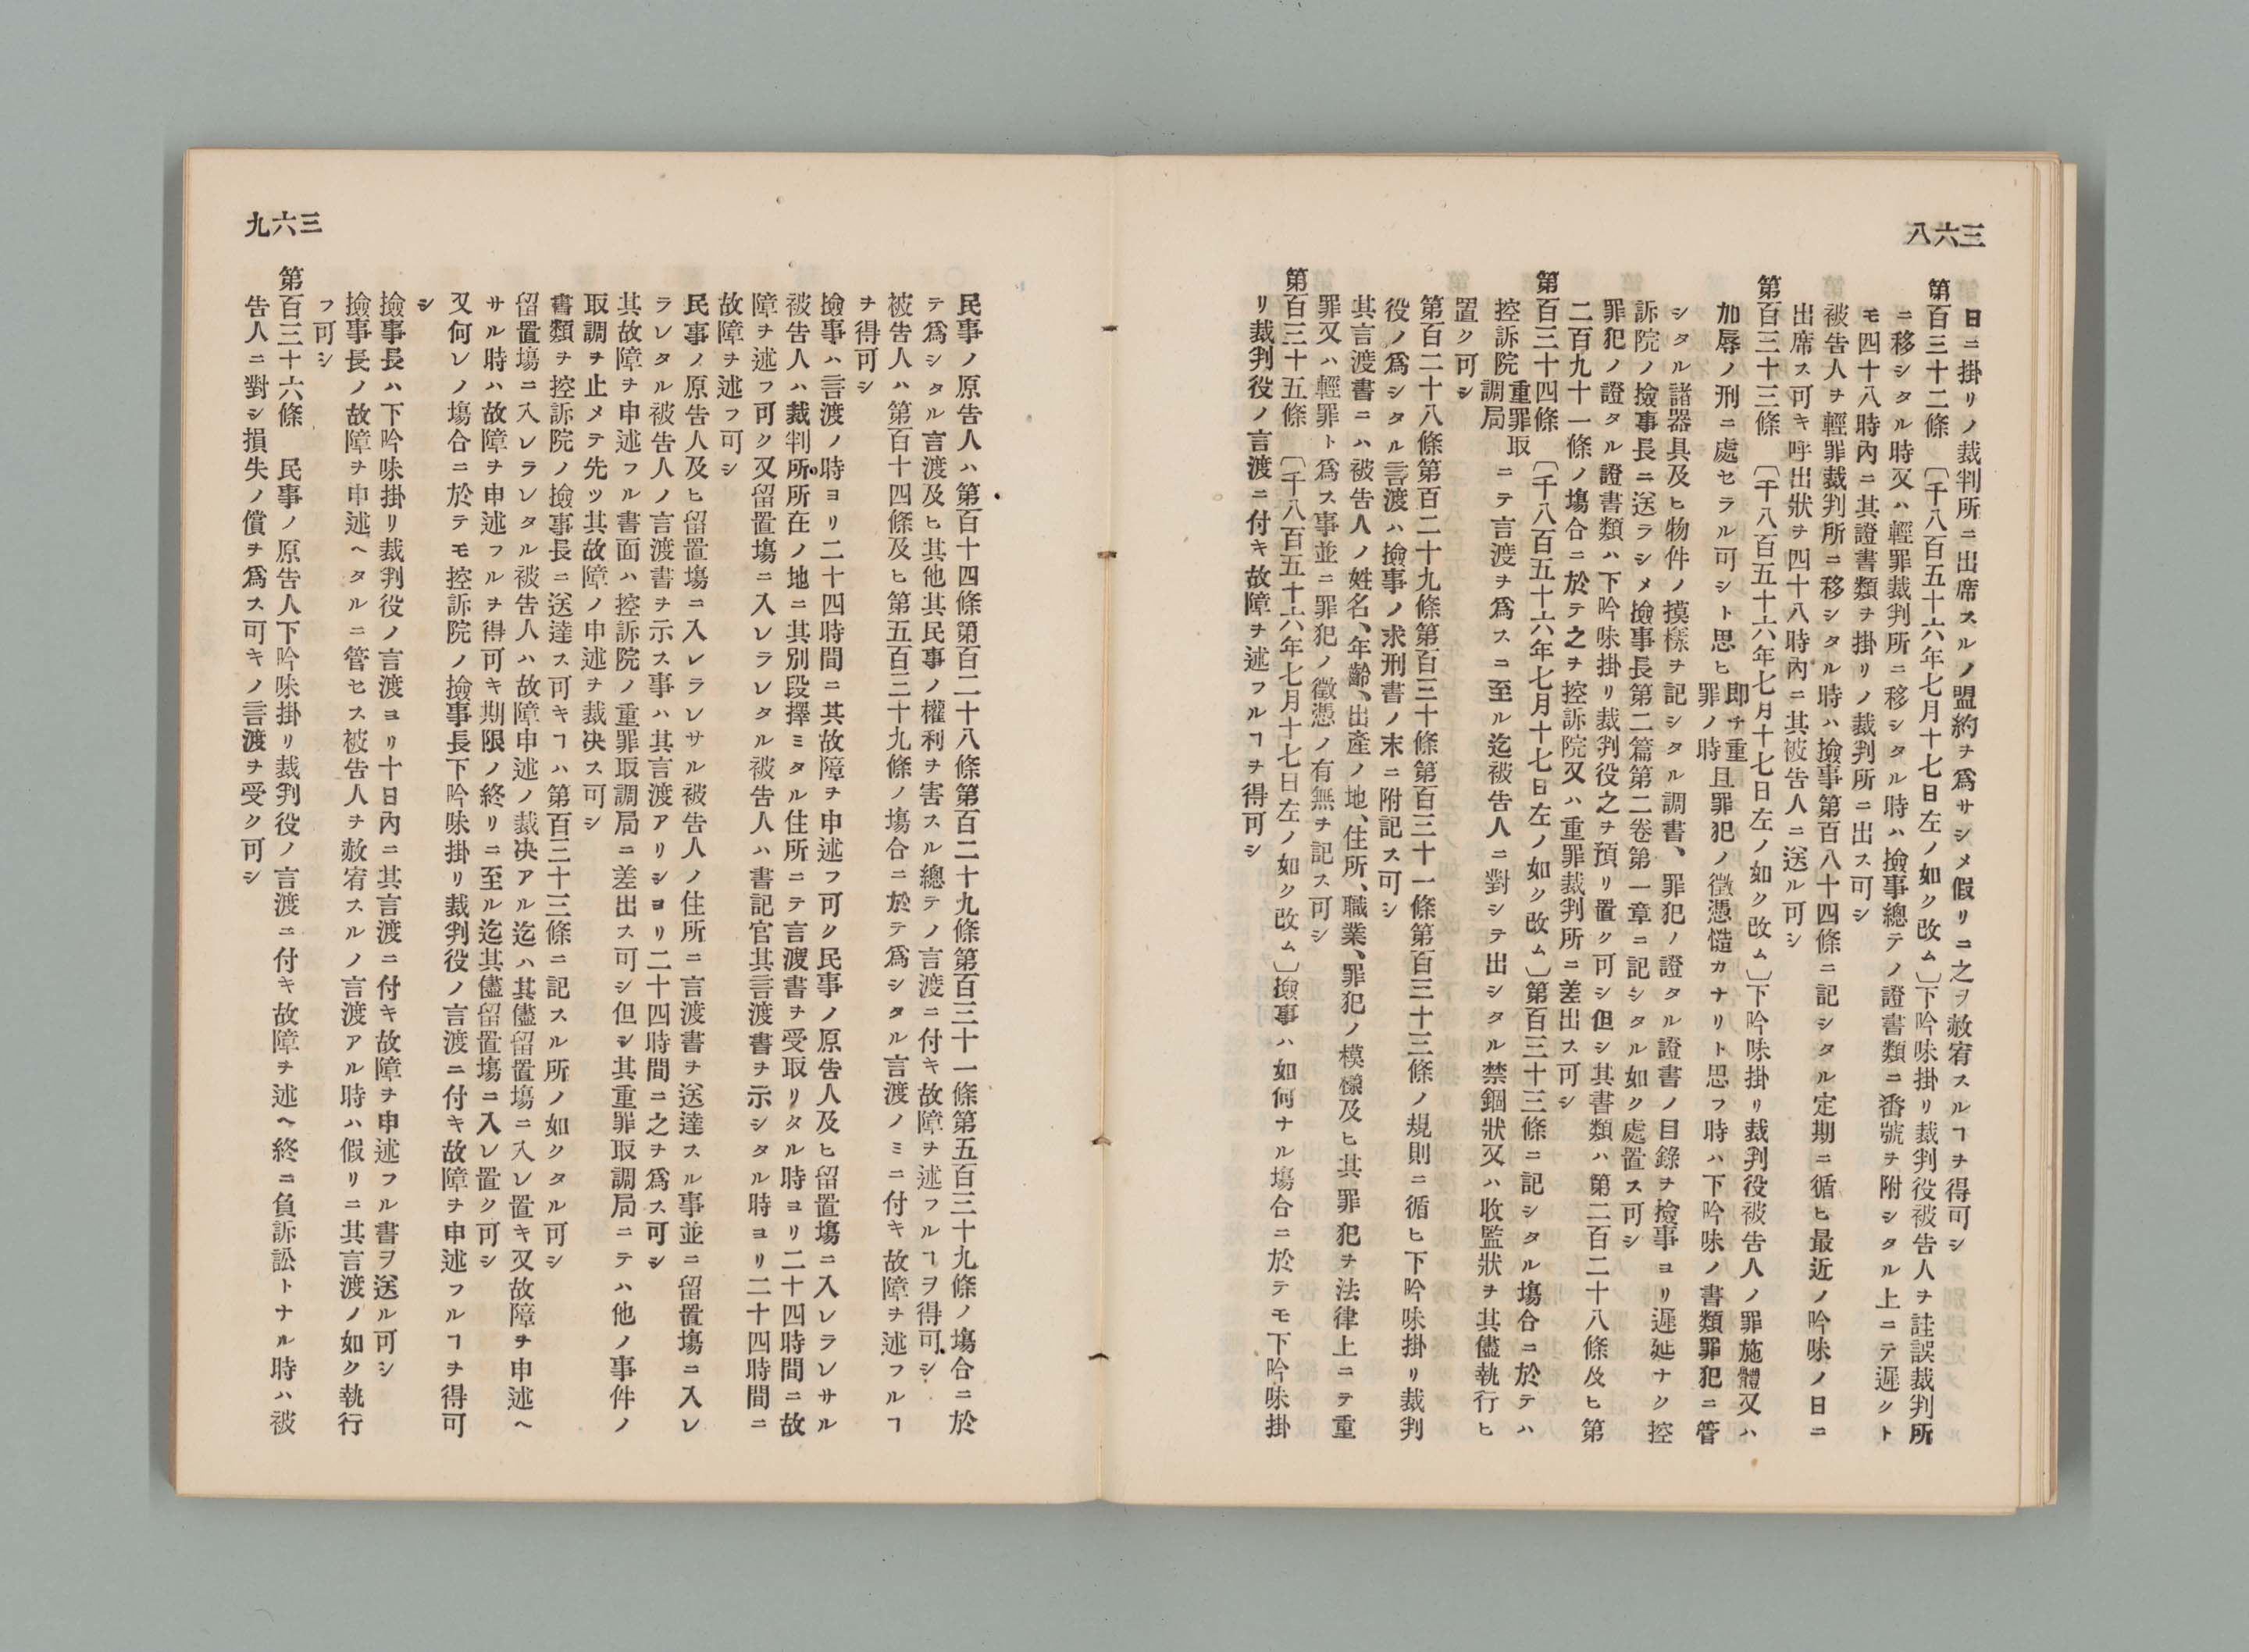 三六八
日ニ掛リノ裁判所ニ出席スルノ盟約ヲ爲サシメ假リニ之ヲ赦宥スルヿヲ得可シ
第百三十二條　〔千八百五十六年七月十七日左ノ如ク改ム〕下吟味掛リ裁判役被告人ヲ詿誤裁判所
ニ移シタル時又ハ輕罪裁判所ニ移シタル時ハ撿事總テノ證書類ニ番號ヲ附シタル上ニテ遲クト
モ四十八時內ニ其證書類ヲ掛リノ裁判所ニ出ス可シ
被告人ヲ輕罪裁判所ニ移シタル時ハ撿事第百八十四條ニ記シタル定期ニ循ヒ最近ノ吟味ノ日ニ
出席ス可キ呼出狀ヲ四十八時內ニ其被告人ニ送ル可シ
第百三十三條　〔千八百五十六年七月十七日左ノ如ク改ム〕下吟味掛リ裁判役被告人ノ罪施體又ハ
加辱ノ刑ニ處セラル可シト思ヒ即チ重罪ノ時且罪犯ノ徵憑慥カナリト思フ時ハ下吟味ノ書類罪犯ニ管
シタル諸器具及ヒ物件ノ摸樣ヲ記シタル調書、罪犯ノ證タル證書ノ目錄ヲ撿事ヨリ遲延ナク控
訴院ノ撿事長ニ送ラシメ撿事長第二篇第二卷第一章ニ記シタル如ク處置ス可シ
罪犯ノ證タル證書類ハ下吟味掛リ裁判役之ヲ預リ置ク可シ但シ其書類ハ第二百二十八條及ヒ第
二百九十一條ノ塲合ニ於テ之ヲ控訴院又ハ重罪裁判所ニ差出ス可シ
第百三十四條　〔千八百五十六年七月十七日左ノ如ク改ム〕第百三十三條ニ記シタル塲合ニ於テハ
控訴院重罪取調局ニテ言渡ヲ爲スニ至ル迄被告人ニ對シテ出シタル禁錮狀又ハ收監狀ヲ其儘執行ヒ
置ク可シ
第百二十八條第百二十九條第百三十條第百三十一條第百三十三條ノ規則ニ循ヒ下吟味掛リ裁判
役ノ爲シタル言渡ハ撿事ノ求刑書ノ末ニ附記ス可シ
其言渡書ニハ被告人ノ姓名、年齡、出產ノ地、住所、職業、罪犯ノ模樣及ヒ其罪犯ヲ法律上ニテ重
罪又ハ輕罪ト爲ス事並ニ罪犯ノ徵憑ノ有無ヲ記ス可シ
第百三十五條　〔千八百五十六年七月十七日左ノ如ク改ム〕撿事ハ如何ナル塲合ニ於テモ下吟味掛
リ裁判役ノ言渡ニ付キ故障ヲ述フルヿヲ得可シ
三六九
民事ノ原告人ハ第百十四條第百二十八條第百二十九條第百三十一條第五百三十九條ノ塲合ニ於
テ爲シタル言渡及ヒ其他其民事ノ權利ヲ害スル總テノ言渡ニ付キ故障ヲ述フルヿヲ得可シ
被告人ハ第百十四條及ヒ第五百三十九條ノ塲合ニ於テ爲シタル言渡ノミニ付キ故障ヲ述フルヿ
ヲ得可シ
撿事ハ言渡ノ時ヨリ二十四時間ニ其故障ヲ申述フ可ク民事ノ原告人及ヒ留置塲ニ入レラレサル
被告人ハ裁判所所在ノ地ニ其別段擇ミタル住所ニテ言渡書ヲ受取リタル時ヨリ二十四時間ニ故
障ヲ述フ可ク又留置塲ニ入レラレタル被告人ハ書記官其言渡書ヲ示シタル時ヨリ二十四時間ニ
故障ヲ述フ可シ
民事ノ原告人及ヒ留置塲ニ入レラレサル被告人ノ住所ニ言渡書ヲ送達スル事並ニ留置塲ニ入レ
ラレタル被告人ノ言渡書ヲ示ス事ハ其言渡アリシヨリ二十四時間ニ之ヲ爲ス可シ
其故障ヲ申述フル書面ハ控訴院ノ重罪取調局ニ差出ス可シ但シ其重罪取調局ニテハ他ノ事件ノ
取調ヲ止メテ先ツ其故障ノ申述ヲ裁決ス可シ
書類ヲ控訴院ノ撿事長ニ送達ス可キヿハ第百三十三條ニ記スル所ノ如クタル可シ
留置塲ニ入レラレタル被告人ハ故障申述ノ裁決アル迄ハ其儘留置塲ニ入レ置キ又故障ヲ申述ヘ
サル時ハ故障ヲ申述フルヲ得可キ期限ノ終リニ至ル迄其儘留置塲ニ入レ置ク可シ
又何レノ塲合ニ於テモ控訴院ノ撿事長下吟味掛リ裁判役ノ言渡ニ付キ故障ヲ申述フルヿヲ得可
シ
撿事長ハ下吟味掛リ裁判役ノ言渡ヨリ十日內ニ其言渡ニ付キ故障ヲ申述フル書ヲ送ル可シ
撿事長ノ故障ヲ申述ヘタルニ管セス被告人ヲ赦宥スルノ言渡アル時ハ假リニ其言渡ノ如ク執行
フ可シ
第百三十六條　民事ノ原告人下吟味掛リ裁判役ノ言渡ニ付キ故障ヲ述ヘ終ニ負訴訟トナル時ハ被
告人ニ對シ損失ノ償ヲ爲ス可キノ言渡ヲ受ク可シ